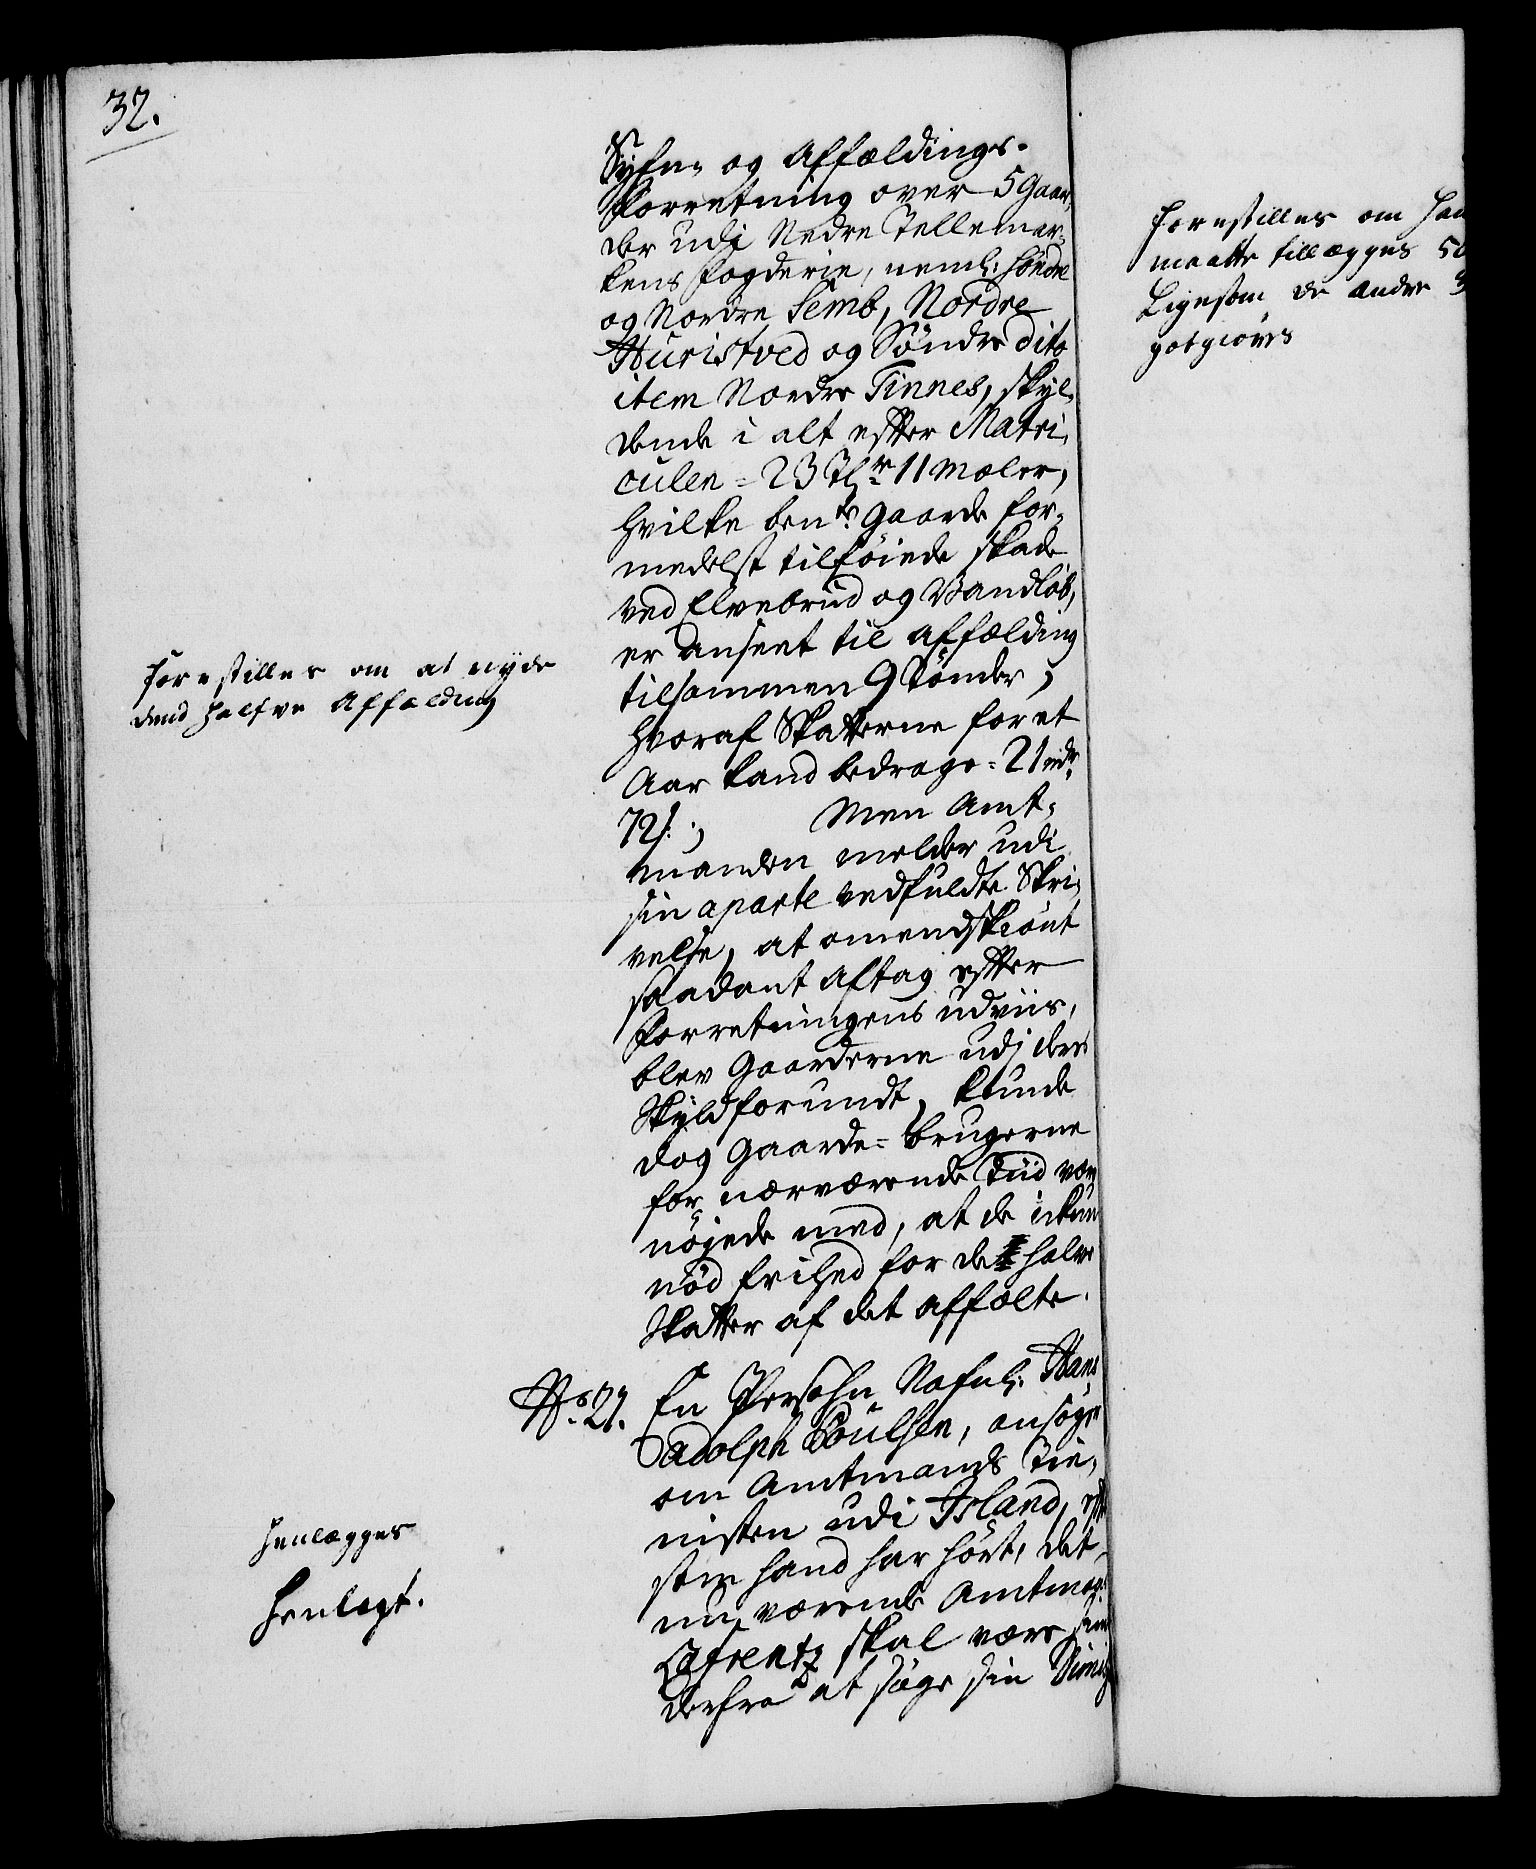 32.
Syhn- og Affældings-
Forretning over 5 Gaar,
der udj Nedre Tellemar-
kens Fogderie, neml: Söndre
og Nordre Semb, Nordre
Huristved og Söndre dito
item Nordre Tinnes, skyl-
dende i alt effter Matri-
culen = 23 Thr 11 Mæler,
hvilke bente Gaarde for-
medelst tilföiede skade
ved Elvebrud og Vandlöb,
er anseet til affælding
tilsammen 9 Tönder,
hvoraf Skatterne for et
Aar kand bedrage = 21 rdr
72 s.; Men Amt-
manden melder udi
sin aparte vedfuldte Skri-
velse, at omendskiönt
saadant aftag effter
Forretningens udviis,
blev Gaarderne udj deres
Skyld forundt, kunde
dog Gaarde-brugerne
for nærværende Tiid være
nöjede med, at de ickun
nöd frihed for de halve
Skatter af det affælte.
Forestilles om at nyde
dend halfve Affælding
No 21. En Persohn Nafnl: Hans
Adolph Poulsen, ansöger
om Amtmands Tie-
nisten udi Island, efft
som hand har hört, det
nu værende Amtmand
Lafrentz skal være
derfra at söge sin
Henlægges
Henlagt.
Forestilles om
maatte tillægges 50
Ligesom de andre
godgiöres